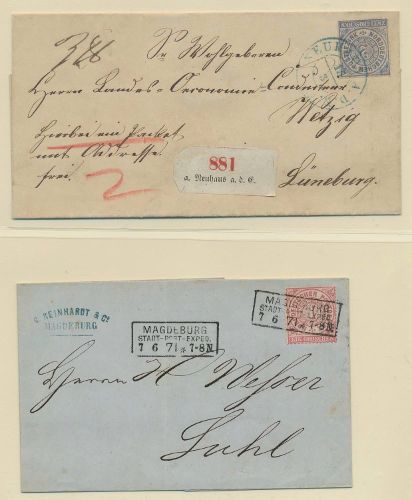 Sr. Wohlgeboren
Herrn Landes-Oeconomie-Conducteur
Wetzig
Hierbei ein Packet
mit Addresse
frei
Lüneburg.
881
a. Neuhaus a. d. E.
C. REINHARDT & Co
MAGDEBURG
MAGDEBURG
STADT-POST-EXPED.
7 6 71 * 7-8N
MAGDEBURG
STADT-POST-EXPED.
7 6 71 * 7-8N
Herrn H Wesser
Suhl